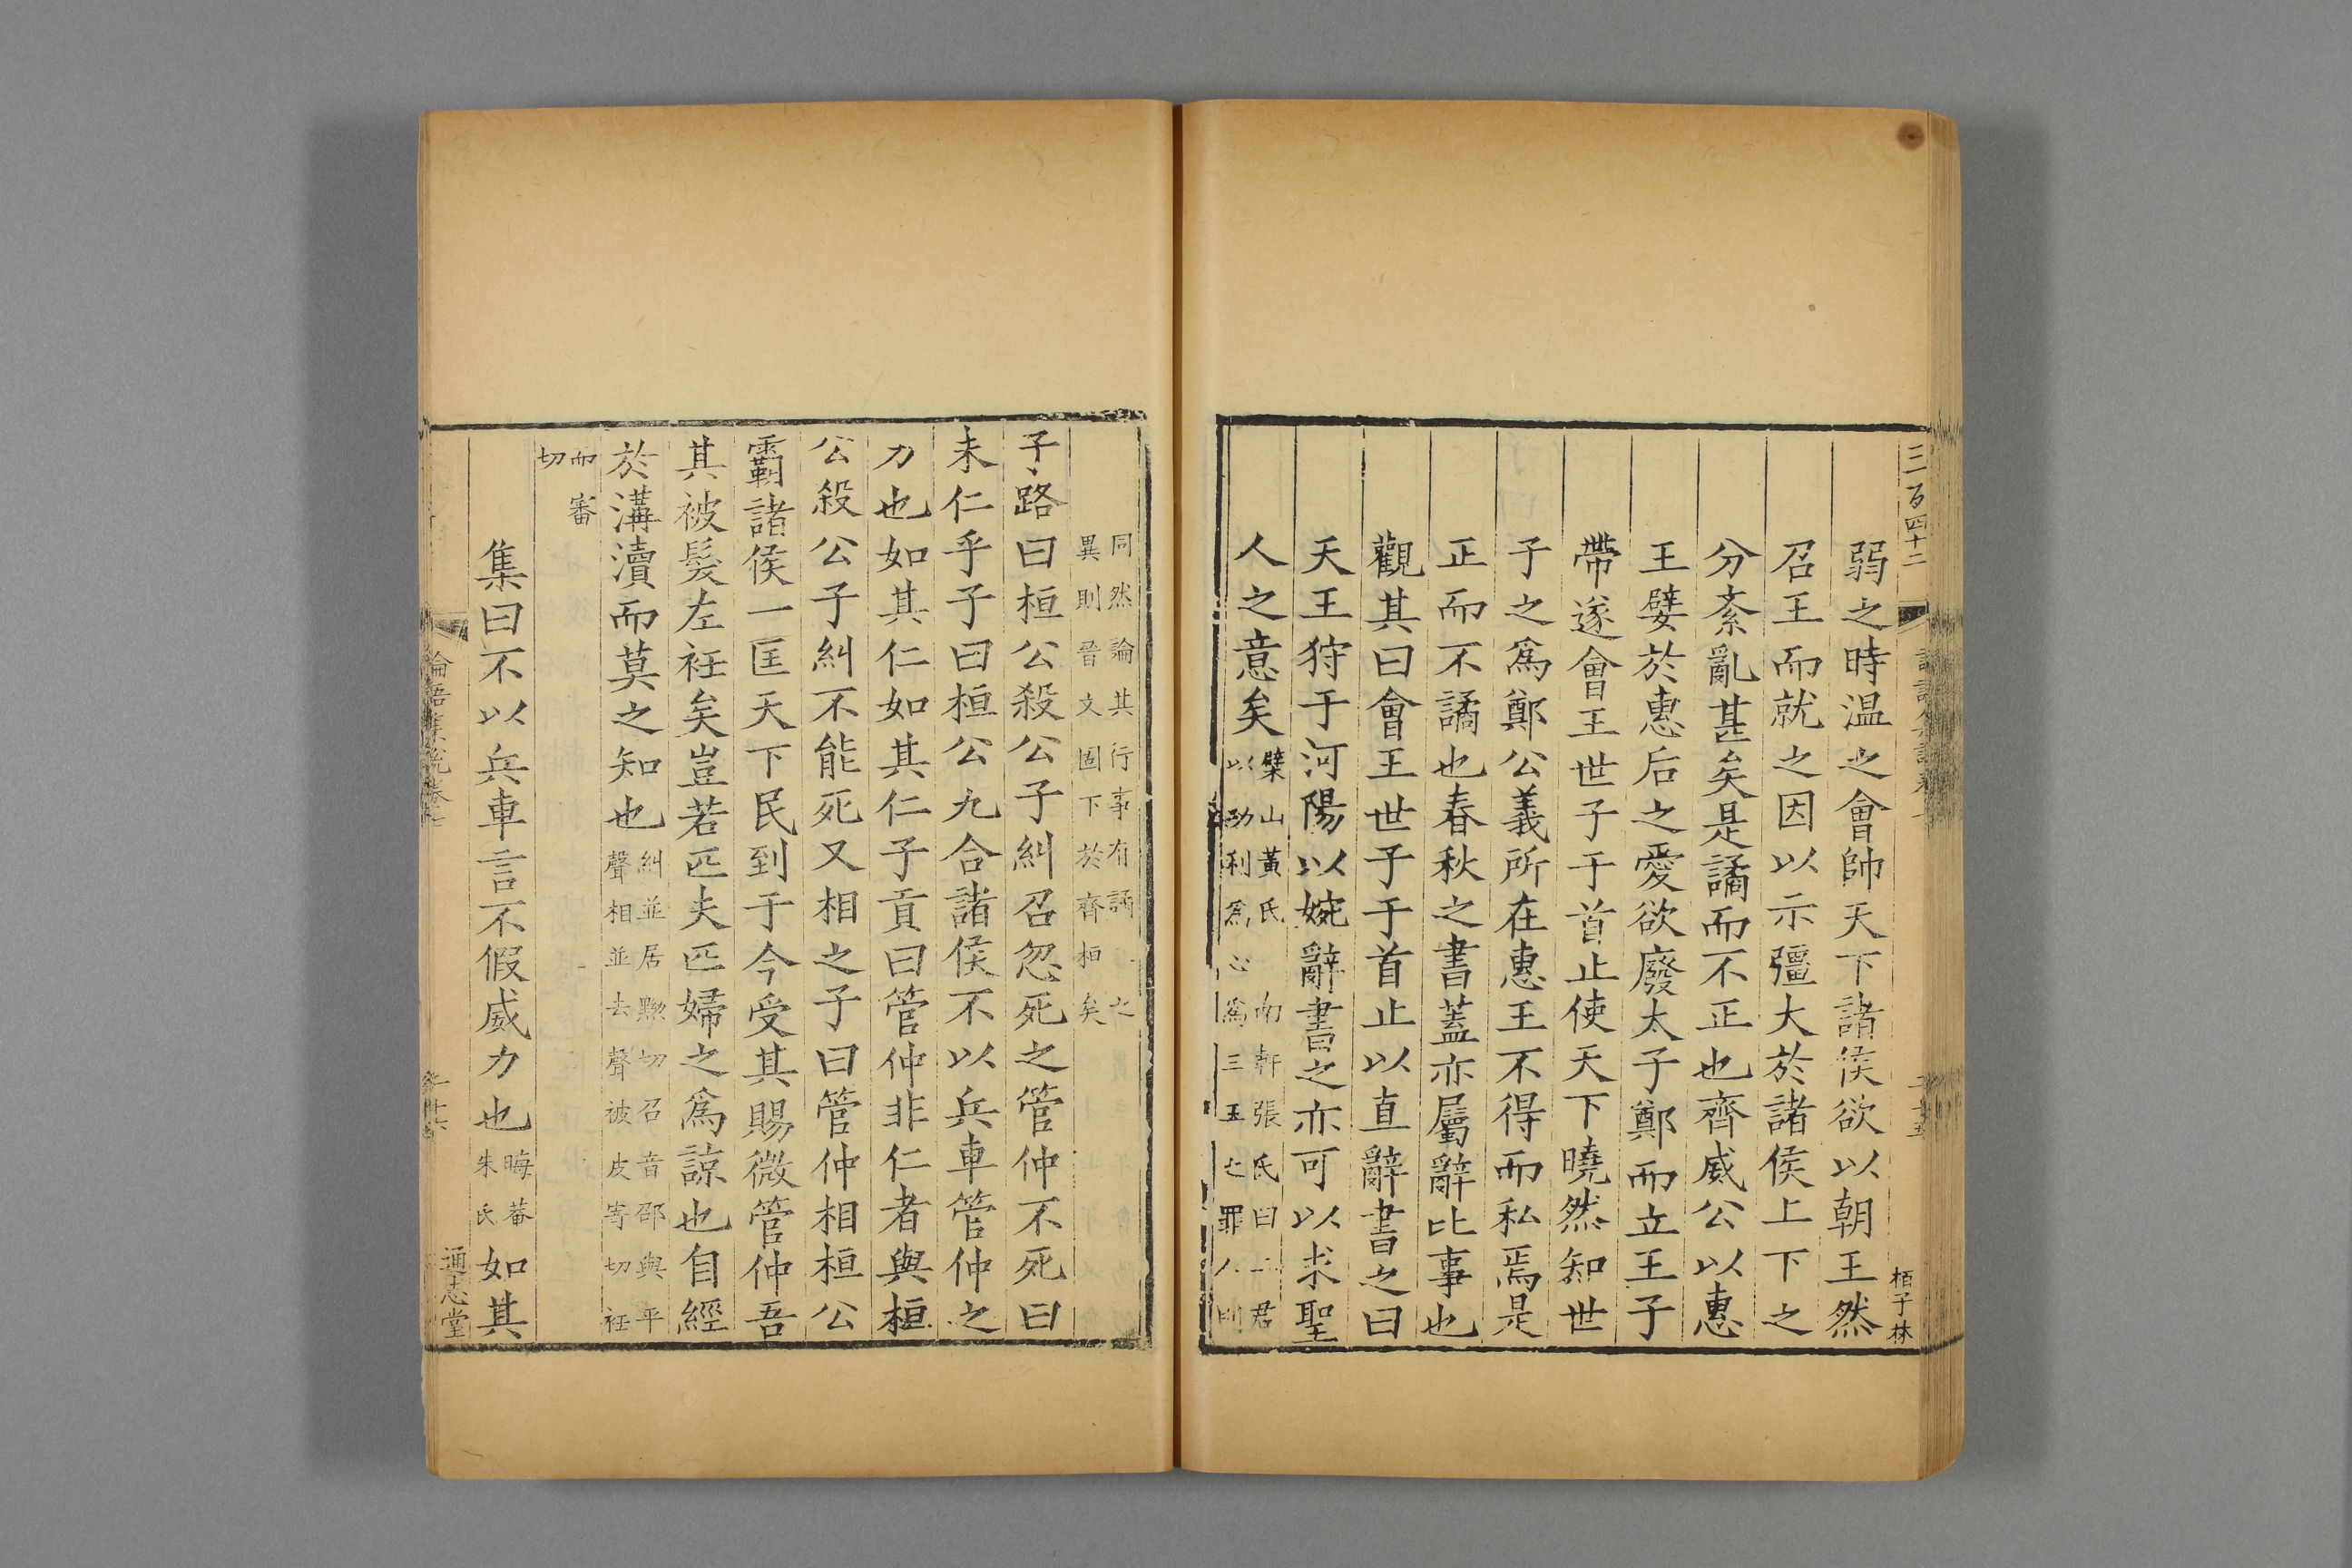 三百四十二
栢子林
弱之時温之會帥天下諸侯欲以朝王然
召王而就之因以示彊大於諸侯上下之
分紊亂甚矣是譎而不正也齊威公以惠
王嬖於惠后之愛欲廢太子鄭而立王子
帶遂會王世子于首止使天下曉然知世
子之爲鄭公義所在惠王不得而私焉是
正而不譎也春秋之書蓋亦屬辭比事也
觀其曰會王世子于首止以直辭書之曰
天王狩于河陽以婉辭書之亦可以求聖
人之意矣檗山黃氏 南軒張氏曰二君
以功利爲心爲三王之罪人則
同然論其行事有譎 之
異則晉文固下於齊桓矣
子路曰桓公殺公子糾召忽死之管仲不死曰
未仁乎子曰桓公九合諸侯不以兵車管仲之
力也如其仁如其仁子貢曰管仲非仁者與桓
公殺公子糾不能死又相之子曰管仲相桓公
霸諸侯一匡天下民到于今受其賜微管仲吾
其被髮左衽矣豈若匹夫匹婦之爲諒也自經
於溝瀆而莫之知也糾並居黝切召音邵與平
聲相並去聲被皮寄切衽
而審
切
集曰不以兵車言不假威力也晦菴
朱氏如其
論語集說卷七
通志堂